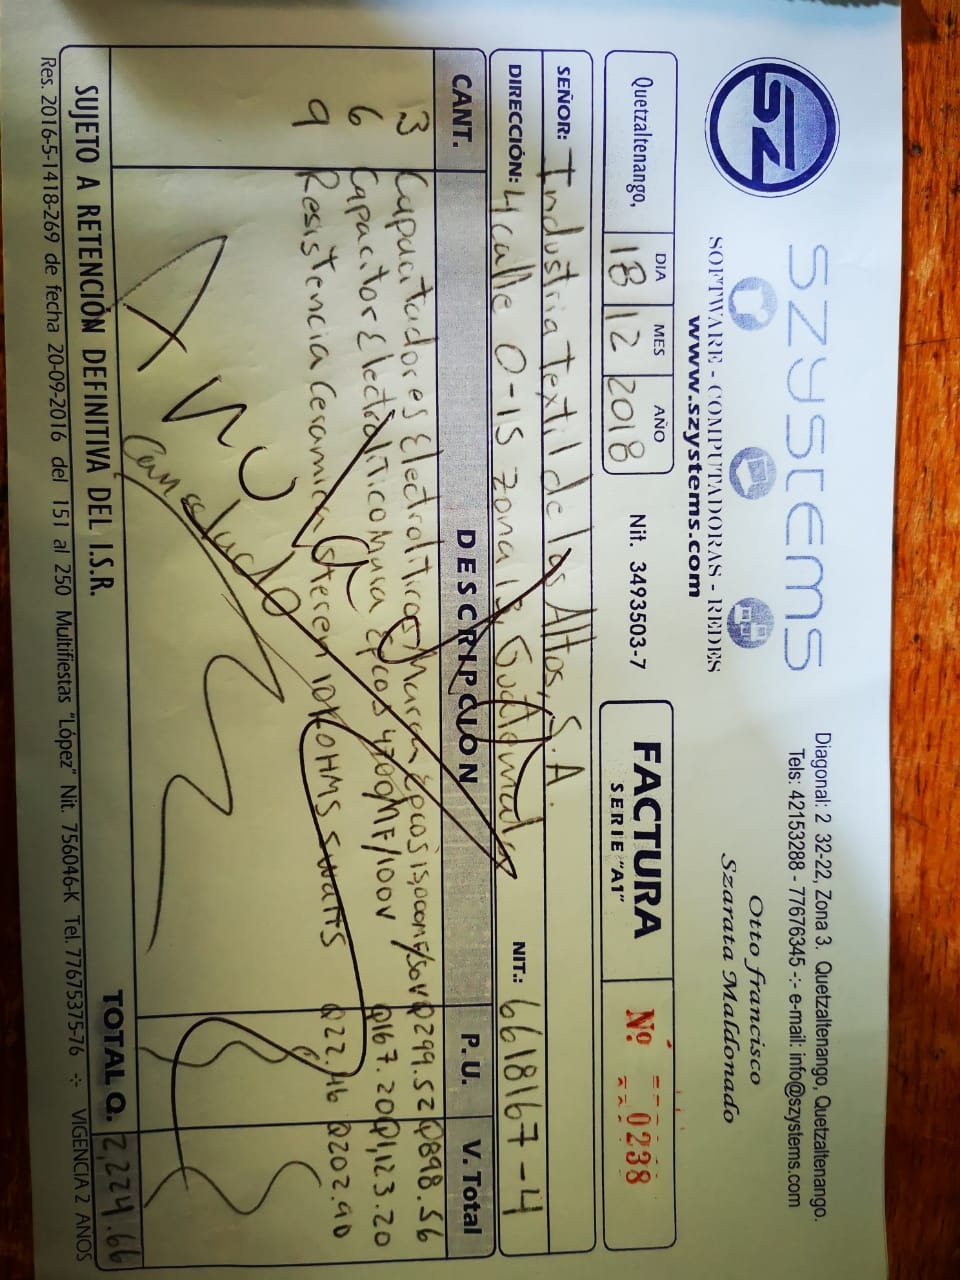 SZ
SZYSTEMS
SOFTWARE - COMPUTADORAS - REDES
www.szystems.com
Diagonal: 2 32-22, Zona 3. Quetzaltenango, Quetzaltenango.
Tels: 42153288 - 77676345 -:- e-mail: info@szystems.com
Otto francisco
Szarata Maldonado
Quetzaltenango,
DIA MES AÑO
18 12 2018
Nit. 3493503-7
FACTURA
SERIE "A1"
Nº 0238
SEÑOR: Industria Textil de los Altos, S.A.
DIRECCIÓN: 4 calle 0-15 zona 13, Guatemala NIT.: 6618167-4
CANT. DESCRIPCION P. U. V. Total
3 Capacitadores Electroliticos Marca Epcos 15,000MF/50V Q299.52 Q898.56
6 Capacitor Electrolitico Marca Epcos 4700MF/100V Q167.20 Q1,123.20
9 Resistencia Ceramica Steren 10K OHMS 5watts Q22.46 Q202.90
Anulado
Cancelado
TOTAL Q. 2,224.66
SUJETO A RETENCIÓN DEFINITIVA DEL I.S.R.
Res. 2016-5-1418-269 de fecha 20-09-2016 del 151 al 250 Multifiestas "López" Nit. 756046-K Tel. 77675375-76 -:- VIGENCIA 2 AÑOS